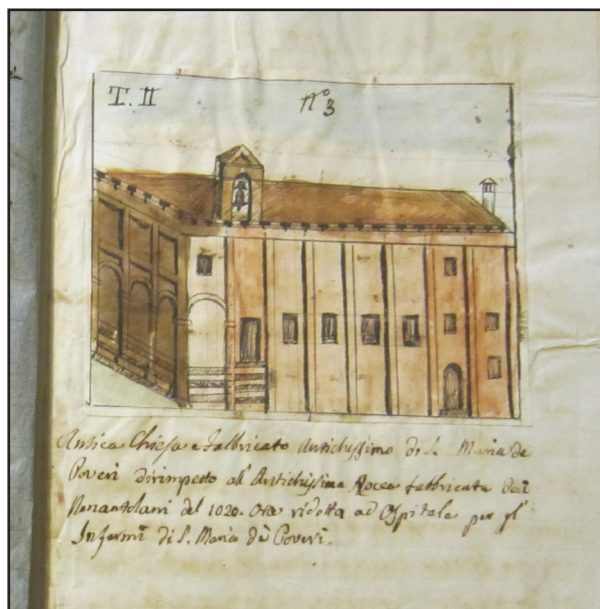 T. II
nº 3
Antica Chiesa e fabbricato Antichissimo di S. Maria de
Poveri dirimpetto all'Antichissima Rocca fabbricata dai
Nonantolani del 1020. Ora ridotta ad Ospitale per gl'
Infermi di S. Maria de Poveri.